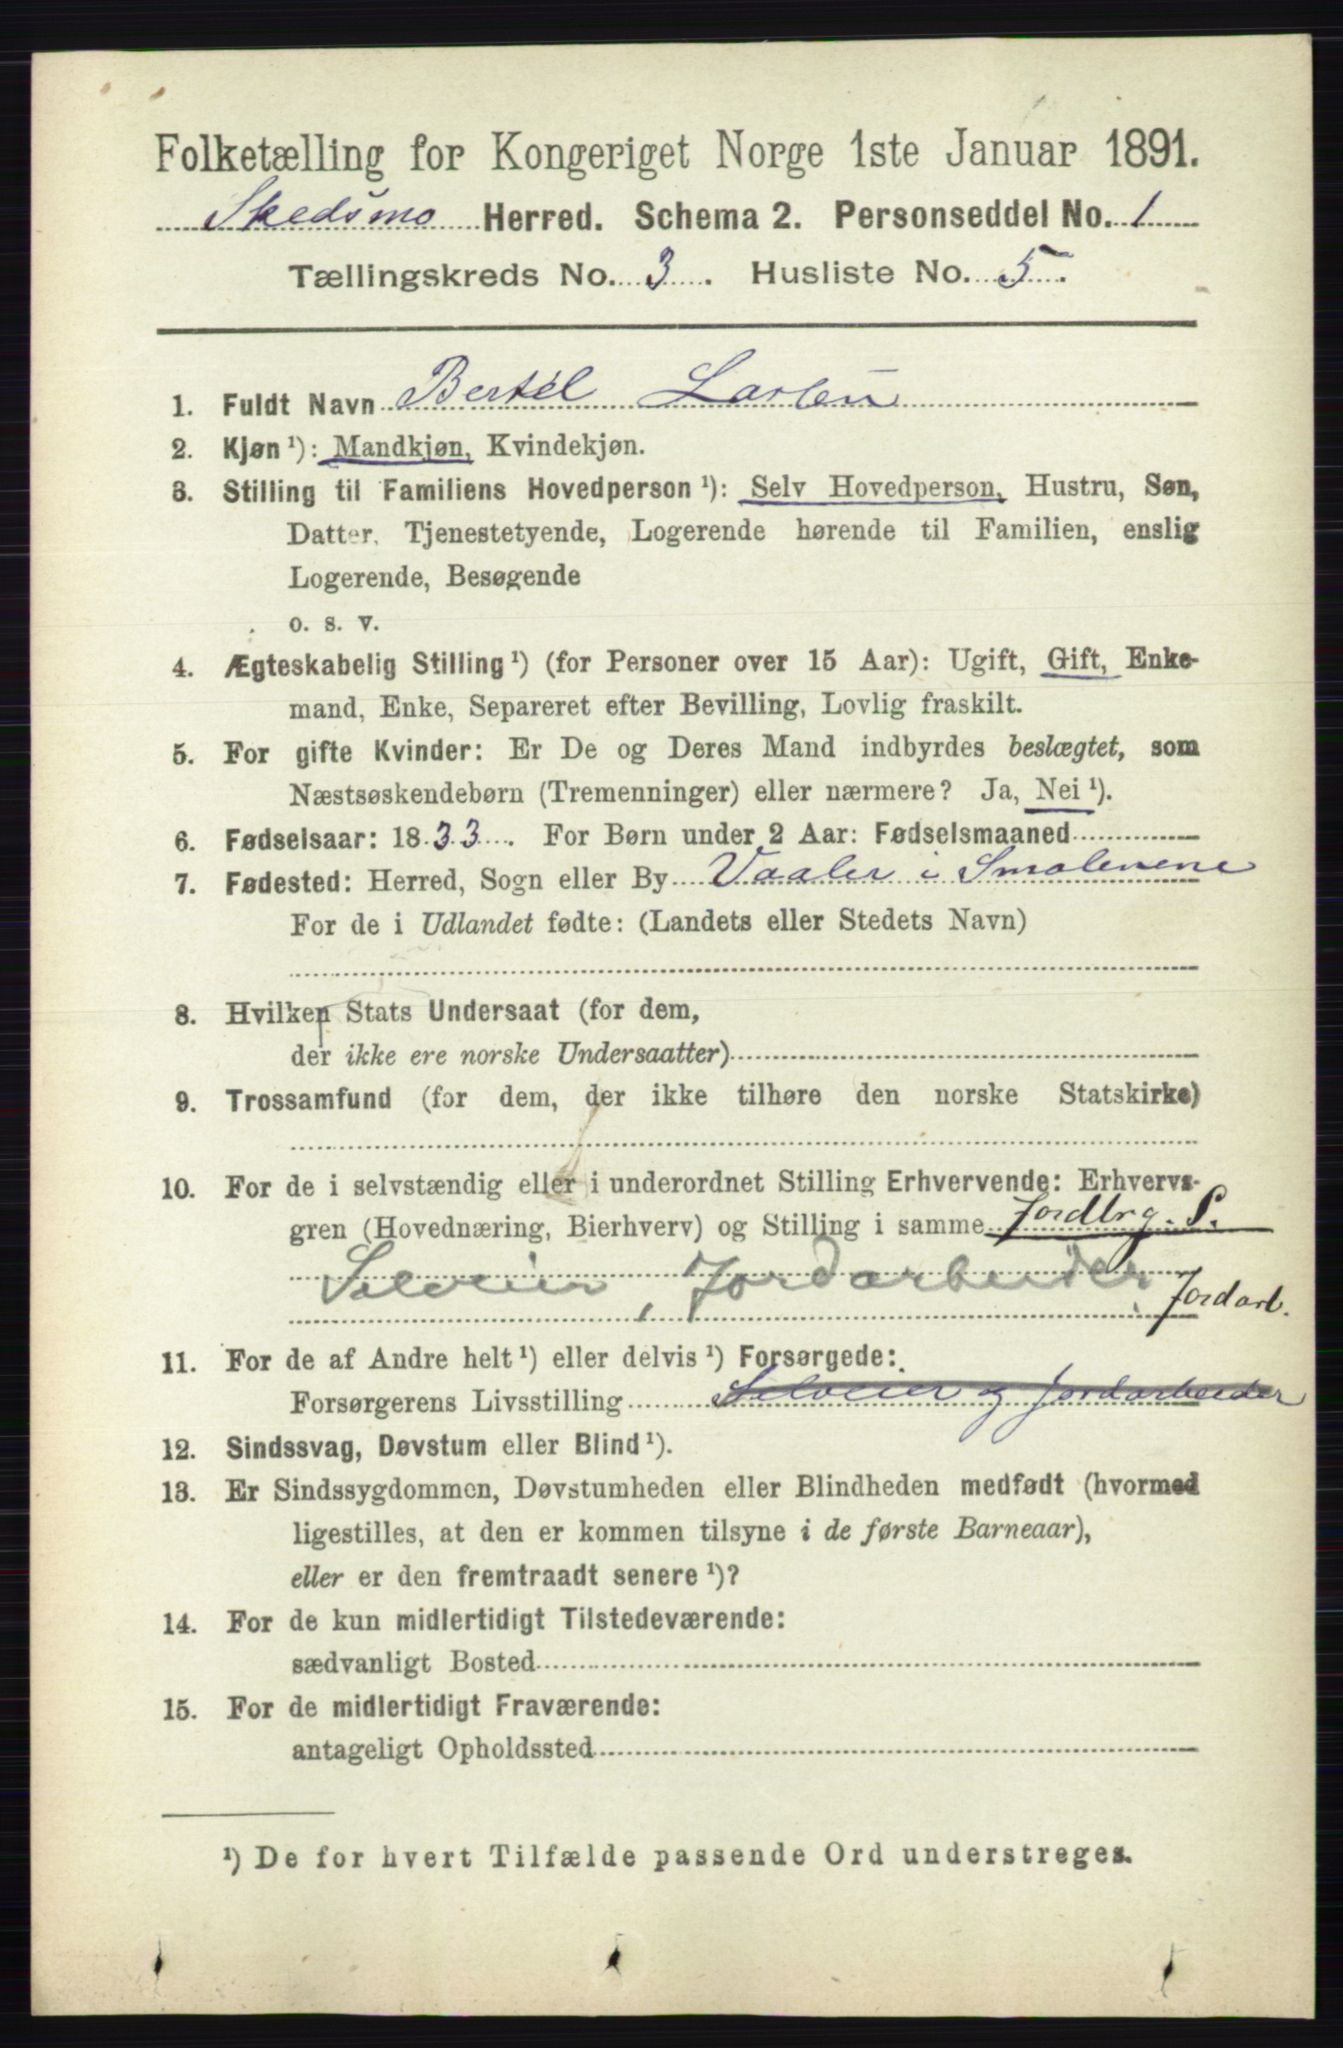 Folketælling for Kongeriget Norge 1ste Januar 1891.
Skedsmo Herred. Schema 2. Personseddel No. 1
Tællingskreds No. 3. Husliste No. 5.
1. Fuldt Navn Bertel Larsen
2. Kjøn ¹): Mandkjøn, Kvindekjøn.
3. Stilling til Familiens Hovedperson ¹): Selv Hovedperson, Hustru, Søn,
Datter, Tjenestetyende, Logerende hørende til Familien, enslig
Logerende, Besøgende
o. s. v.
4. Ægteskabelig Stilling ¹) (for Personer over 15 Aar): Ugift, Gift, Enke-
mand, Enke, Separeret efter Bevilling, Lovlig fraskilt.
5. For gifte Kvinder: Er De og Deres Mand indbyrdes beslægtet, som
Næstsøskendebørn (Tremenninger) eller nærmere? Ja, Nei ¹).
6. Fødselsaar: 1833. For Børn under 2 Aar: Fødselsmaaned
7. Fødested: Herred, Sogn eller By Vaaler i Smolenene
For de i Udlandet fødte: (Landets eller Stedets Navn)
8. Hvilken Stats Undersaat (for dem,
der ikke ere norske Undersaatter)
9. Trossamfund (for dem, der ikke tilhøre den norske Statskirke)
10. For de i selvstændig eller i underordnet Stilling Erhvervende: Erhvervs-
gren (Hovednæring, Bierhverv) og Stilling i samme Jordbrg. S.
Selveier, Jordarbeider. Jordarb.
11. For de af Andre helt ¹) eller delvis ¹) Forsørgede:
Forsørgerens Livsstilling Selveier og Jordarbeider
12. Sindssvag, Døvstum eller Blind ¹).
13. Er Sindssygdommen, Døvstumheden eller Blindheden medfødt (hvormed
ligestilles, at den er kommen tilsyne i de første Barneaar),
eller er den fremtraadt senere ¹)?
14. For de kun midlertidigt Tilstedeværende:
sædvanligt Bosted
15. For de midlertidigt Fraværende:
antageligt Opholdssted
¹) De for hvert Tilfælde passende Ord understreges.